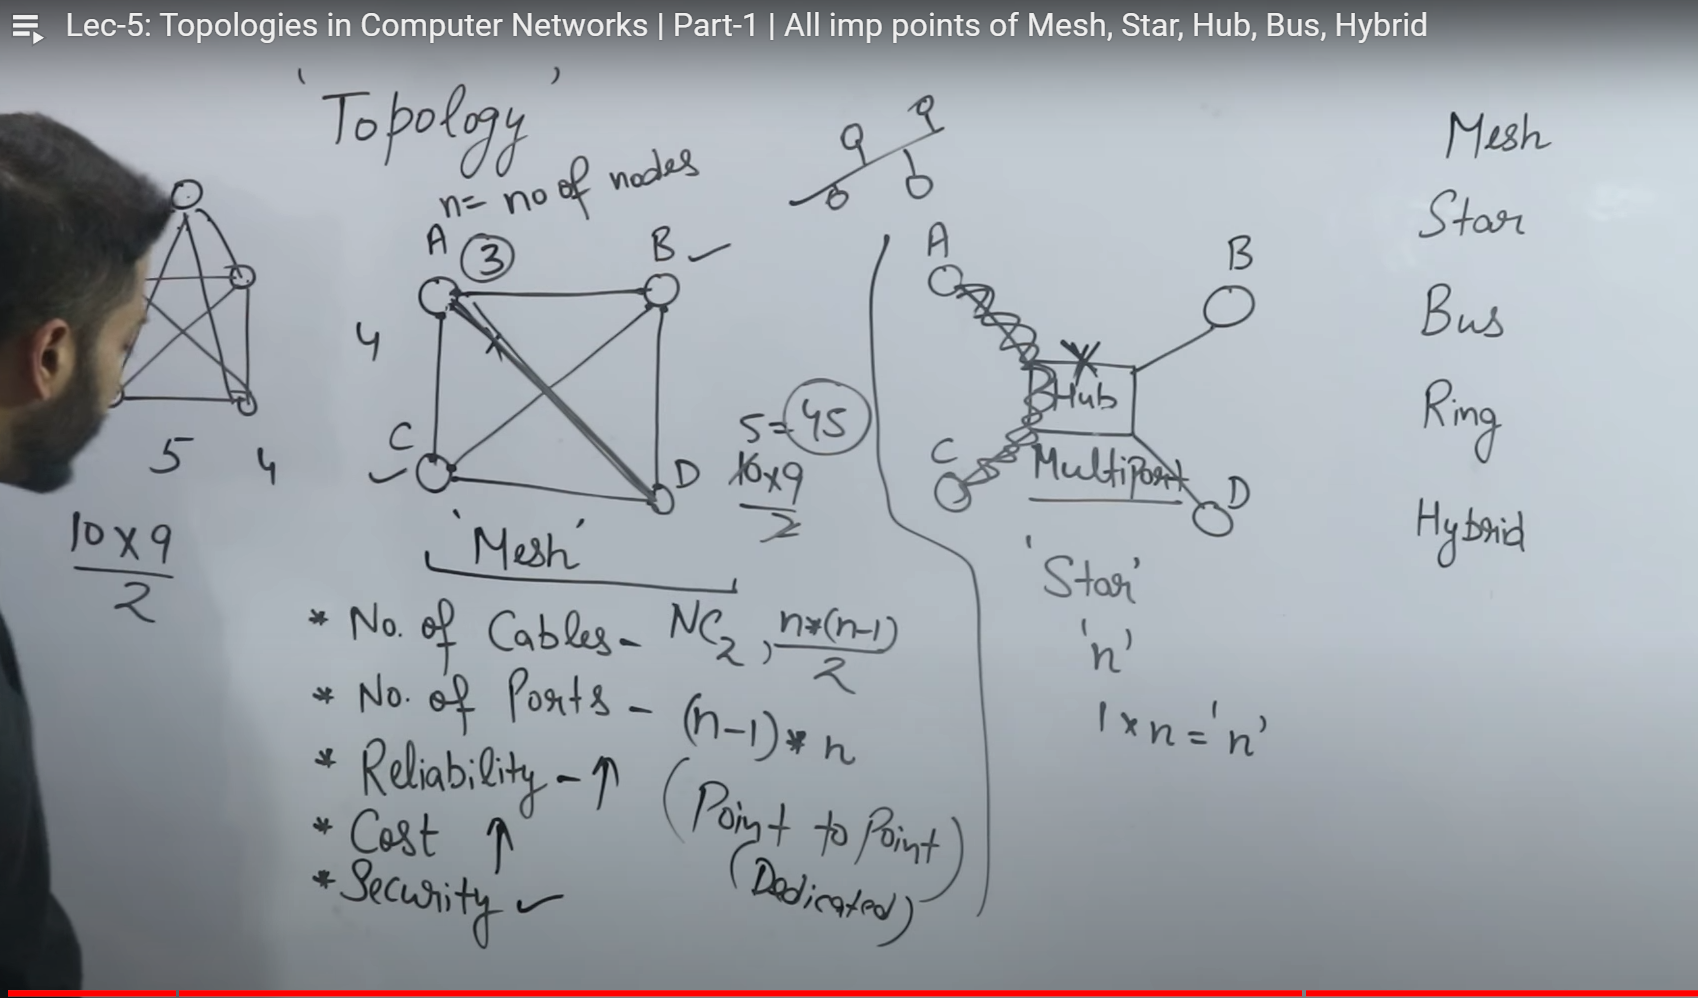 Lec-5: Topologies in Computer Networks | Part-1 | All imp points of Mesh, Star, Hub, Bus, Hybrid
'Topology'
n= no of nodes
A 3 B
4
C D
5 4
10x9
2
5=45
10x9
2
'Mesh'
* No. of Cables - NC2, n*(n-1)
2
* No. of Ports - (n-1)*n
* Reliability - ↑
(Point to Point)
* Cost ↑
(Dedicated)
* Security ✓
A B
Hub
C D
MultiPort
'Star'
'n'
1 x n = 'n'
Mesh
Star
Bus
Ring
Hybrid